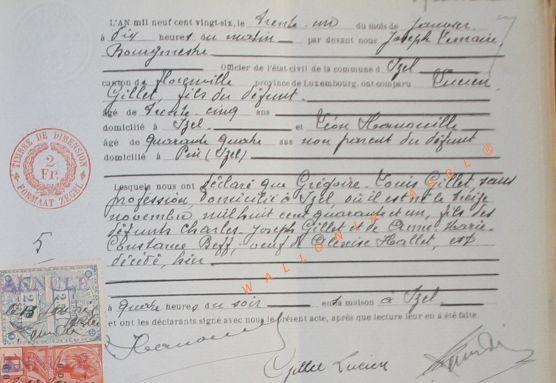 L'AN mil neuf cent vingt-six, le trente un du mois de janvier
à dix heures du matin par devant nous Joseph Lemaire
Bourgmestre
Officier de l'état-civil de la commune d'Izel
canton de Florenville province de Luxembourg, ont comparu Lucien
Gillet, fils du défunt
âgé de trente cinq ans
domicilié à Izel et Léon
âgé de quarante quatre ans non parent du défunt
domicilié à Pin (Izel)
Lesquels nous ont déclaré que Grégoire Louis Gillet, sans
profession domicilié à Izel, où il est né le seize
novembre, mil huit cent quarante et un, fils des
défunts Charles-Joseph Gillet et de Anne-Marie
Constance veuf de Hallet, est
décédé, hier
à quatre heures du soir en sa maison à Izel
et ont les déclarants signé avec nous le présent acte, après que lecture leur en a été faite.
Gillet Lucien
TIMBRE DE DIMENSION
2
FR.
FORMAAT ZEGEL
5
ANNULÉ
WALLONIA ASBL ®